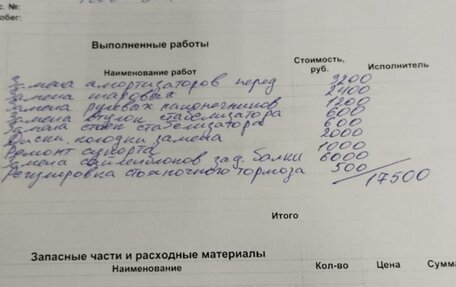 с. №:
обег:
Выполненные работы
Наименование работ Стоимость, руб. Исполнитель
Замена амортизаторов перед 3200
Замена шаровых 2400
Замена рулевых наконечников 1200
Замена втулок стабелизатора 600
Замена стоек стабелизатора 600
Диски колодки замена 2000
Ремонт супорта 1000
Замена сайленблоков зад. балки 6000
Регулировка стояночного тормоза 500
17500
Итого
Запасные части и расходные материалы
Наименование Кол-во Цена Сумм